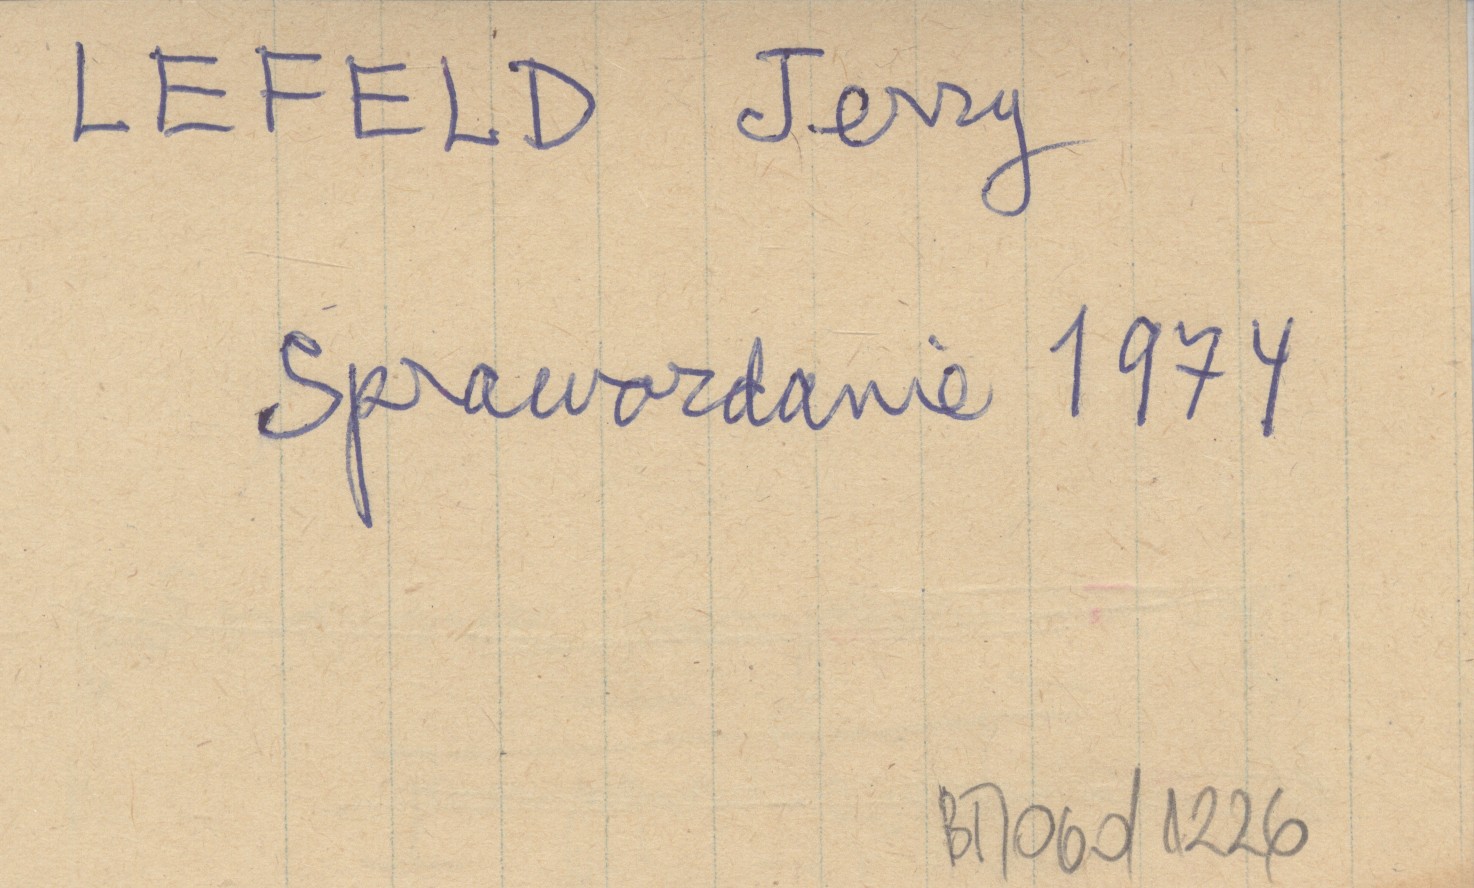 LEFELD Jerzy
Sprawozdanie 1974